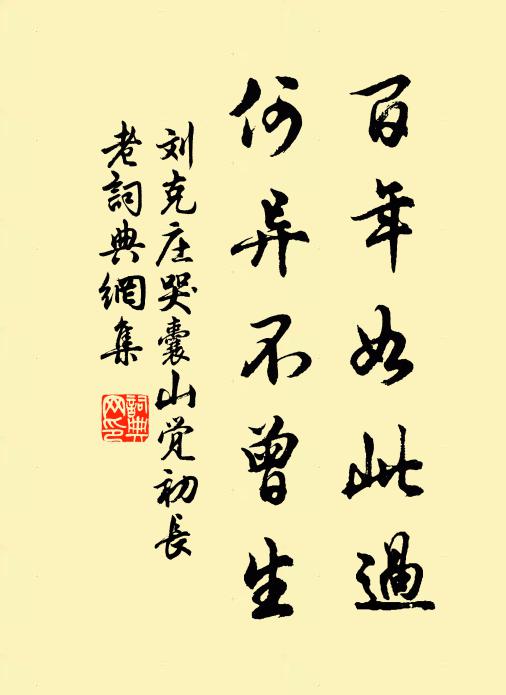 百年如此過
何异不曾生
刘克庄哭囊山觉初長
老詞典網集
詞典网印